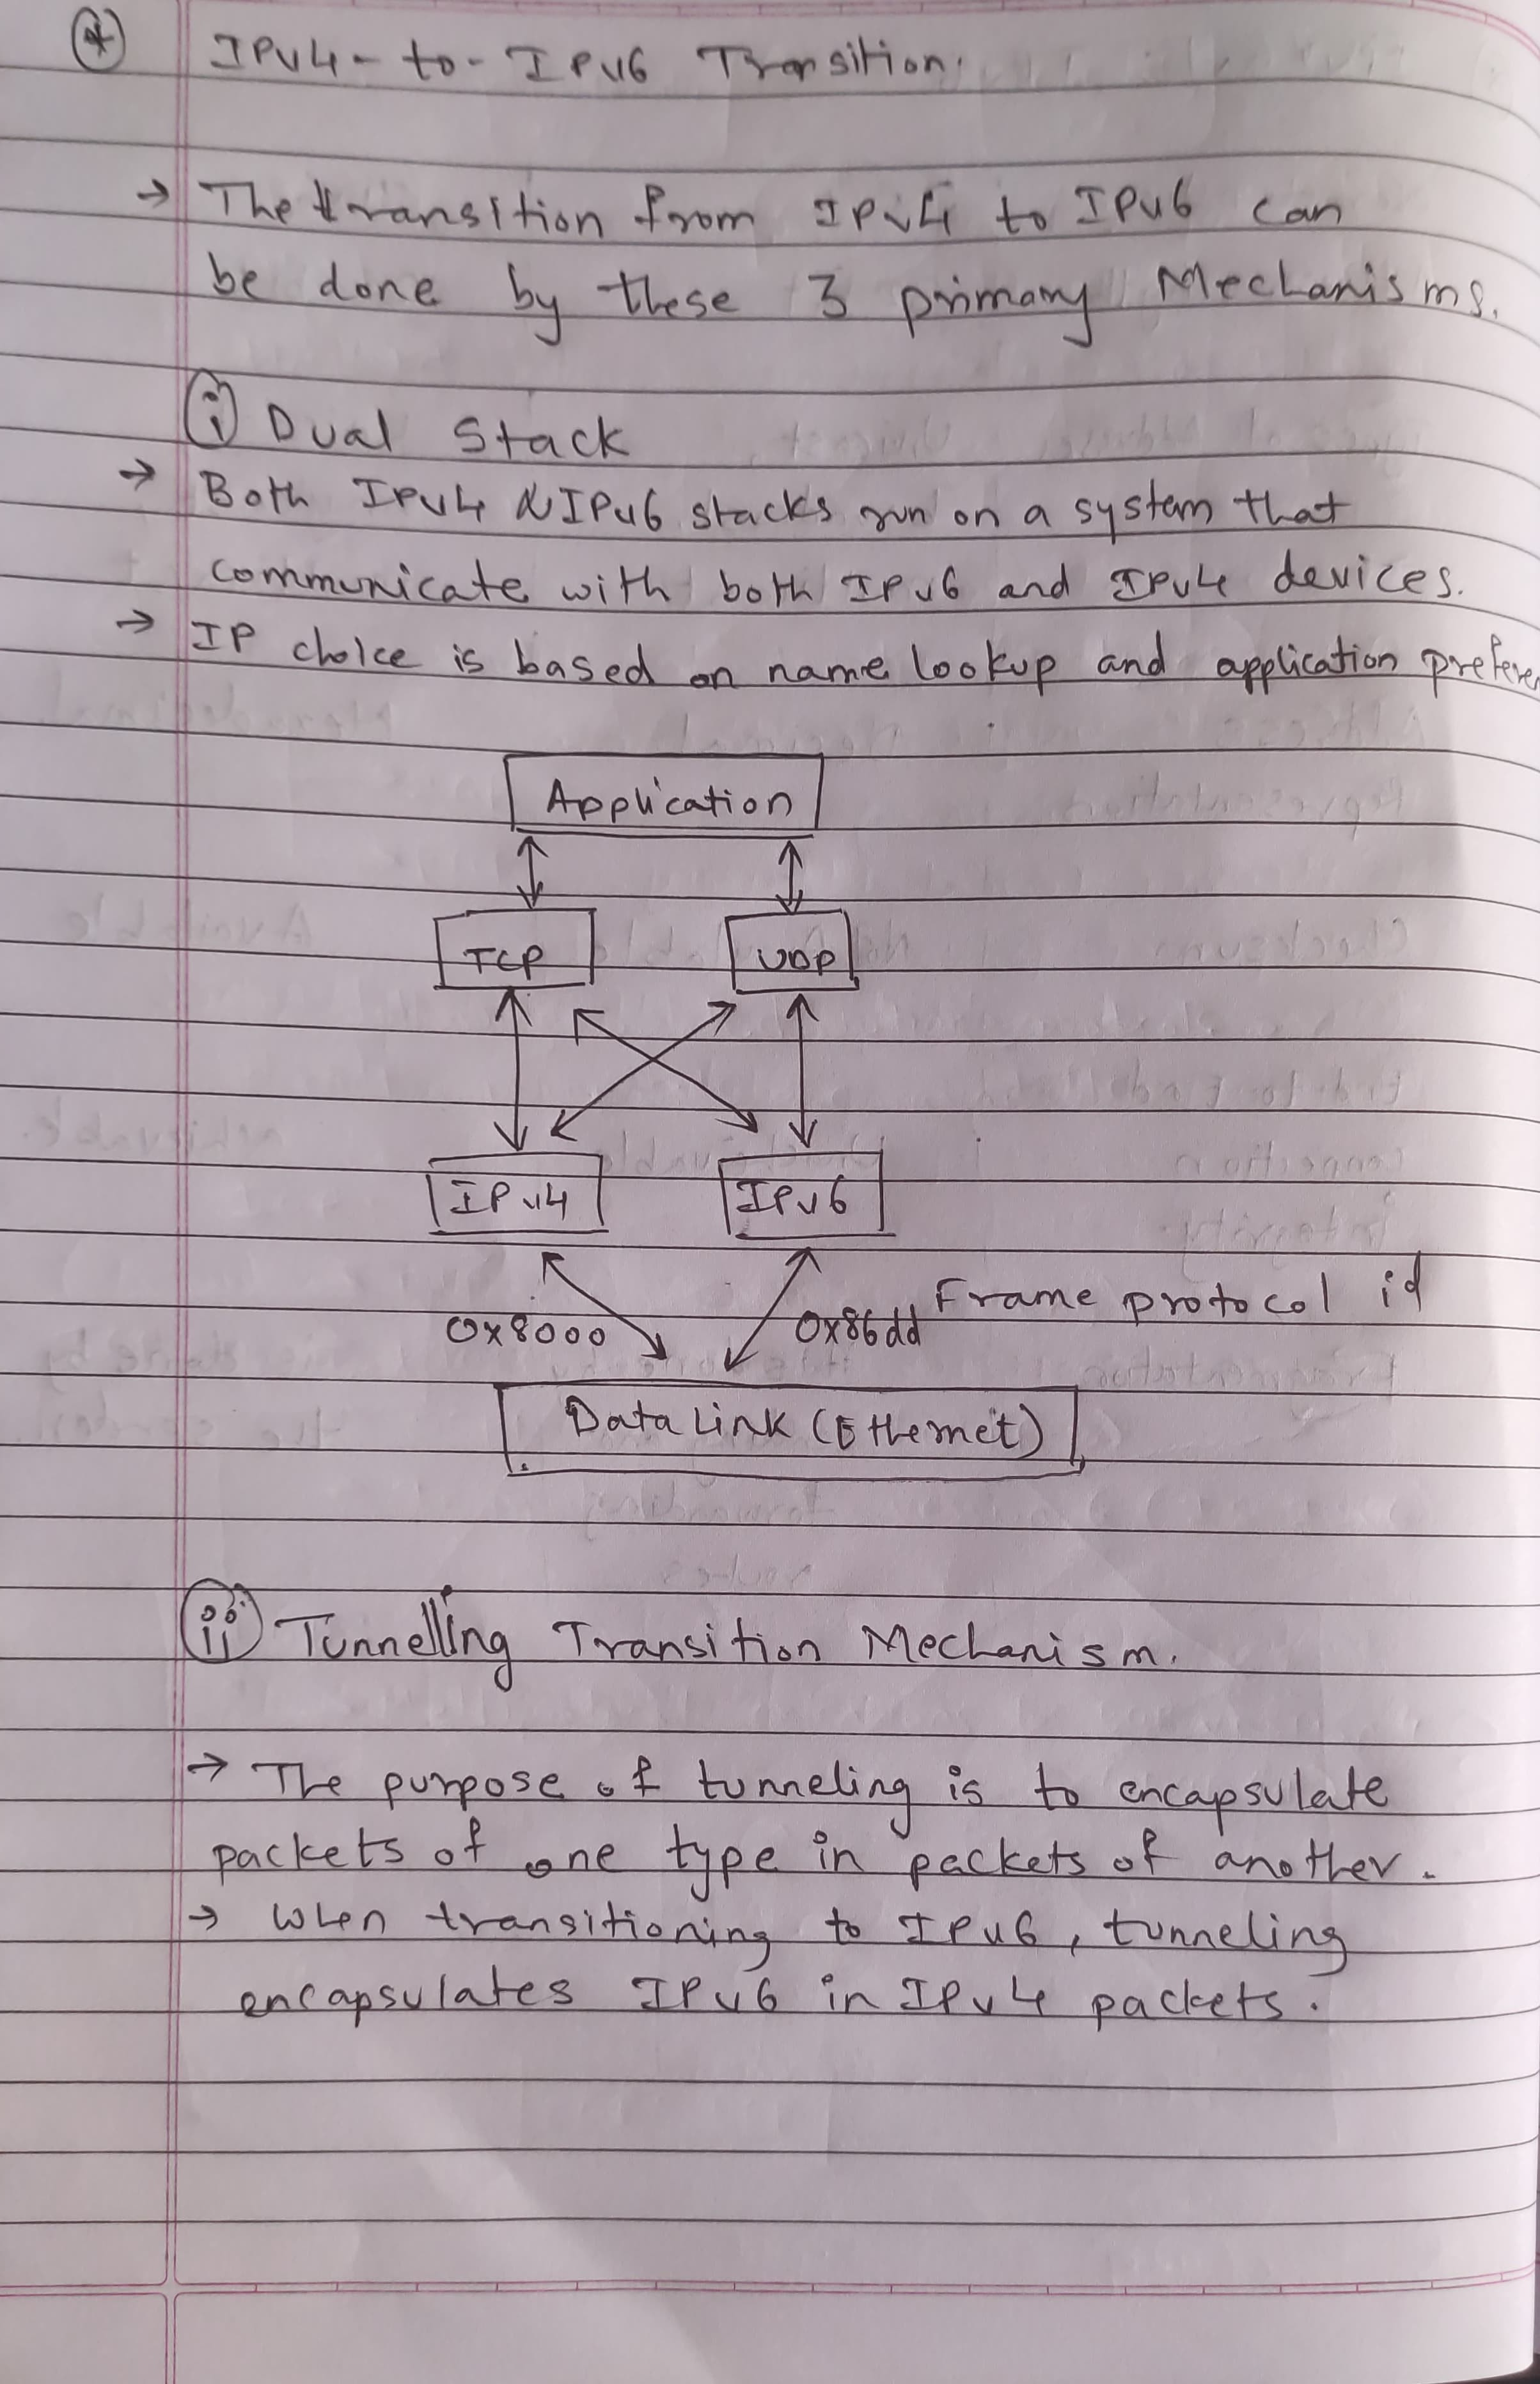 * IPv4-to-IPv6 Transition.
→ The transition from IPv4 to IPv6 can
be done by these 3 primary Mechanisms.
i Dual Stack
→ Both IPv4 & IPv6 stacks run on a system that
communicate with both IPv6 and IPv4 devices.
→ IP choice is based on name lookup and application prefere
Application
TCP UDP
IPv4 IPv6
0x8000 0x86dd Frame protocol id
Data Link (Ethernet)
ii Tunnelling Transition Mechanism.
→ The purpose of tunneling is to encapsulate
packets of one type in packets of another.
→ When transitioning to IPv6, tunneling
encapsulates IPv6 in IPv4 packets.